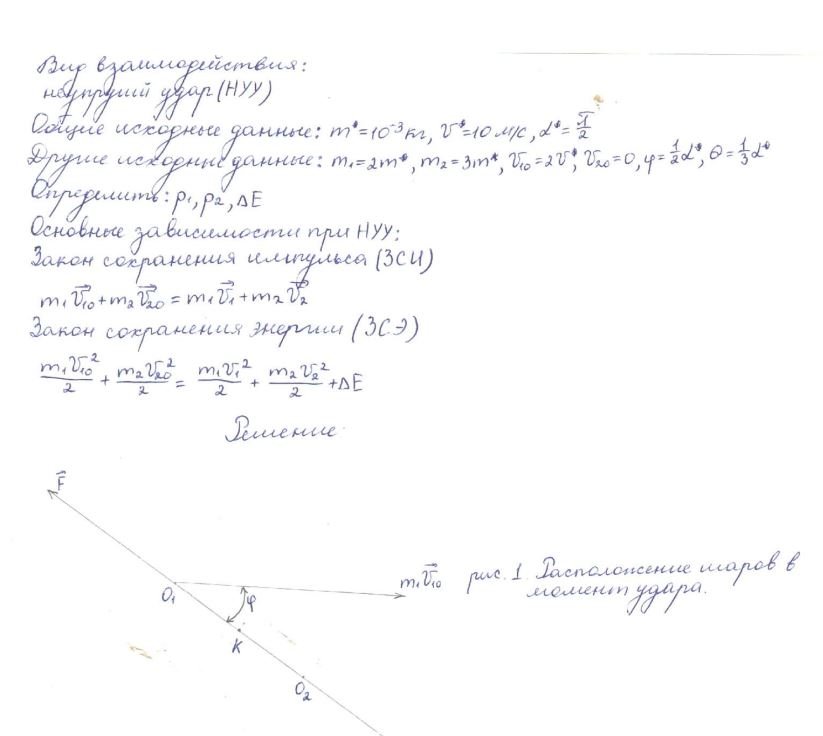 Вид взаимодействия:
неупругий удар (НУУ)
Общие исходные данные: m*=10⁻³кг, v*=10 м/с, α*=π/2
Другие исходные данные: m₁=2m*, m₂=3m*, v₁₀=2v*, v₂₀=0, φ=1/2α*, θ=1/3α*
Определить: p₁, p₂, ΔE
Основные зависимости при НУУ:
Закон сохранения импульса (ЗСИ)
m₁v⃗₁₀+m₂v⃗₂₀=m₁v⃗₁+m₂v⃗₂
Закон сохранения энергии (ЗСЭ)
m₁v₁₀²/2 + m₂v₂₀²/2 = m₁v₁²/2 + m₂v₂²/2 + ΔE
Решение
F⃗
O₁
φ
K
O₂
m₁v⃗₁₀
рис. 1. Расположение шаров в
момент удара.